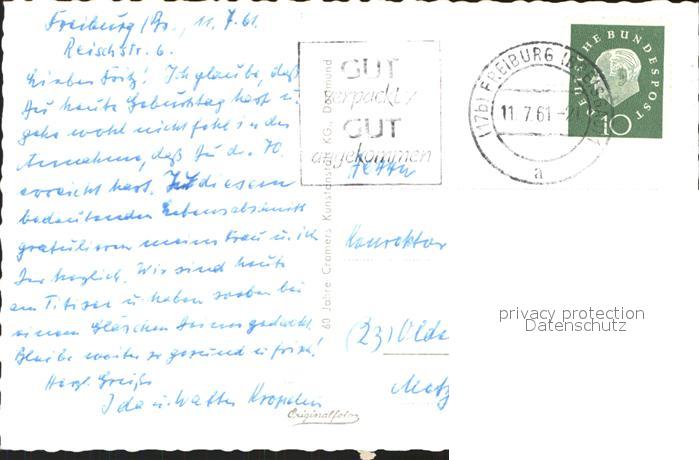 Freiburg/Br., 11.7.61.
Reischstr. 6.
Lieber Fritz! Ich glaube, daß
Du heute Geburtstag hast u.
gehe wohl nicht fehl in der
Annahme, daß Du d. 70.
erreicht hast. Zu diesem
bedeutenden Lebensabschnitt
gratulieren meine Frau u. ich
Dir herzlich. Wir sind heute
am Titisee u. haben soeben bei
einem Gläschen Deiner gedacht.
Bleibe weiter so gesund u. frisch!
Herzl. Grüße
Ida u. Walter
60 Jahre Cramers Kunstanstalt KG., Dortmund
Originalfoto
GUT
verpackt /
GUT
angekommen
(17b) FREIBURG (BREISGAU)
11.7.61
a
DEUTSCHE BUNDESPOST
10
Herrn
Konrektor
(23) Olde
privacy protection
Datenschutz